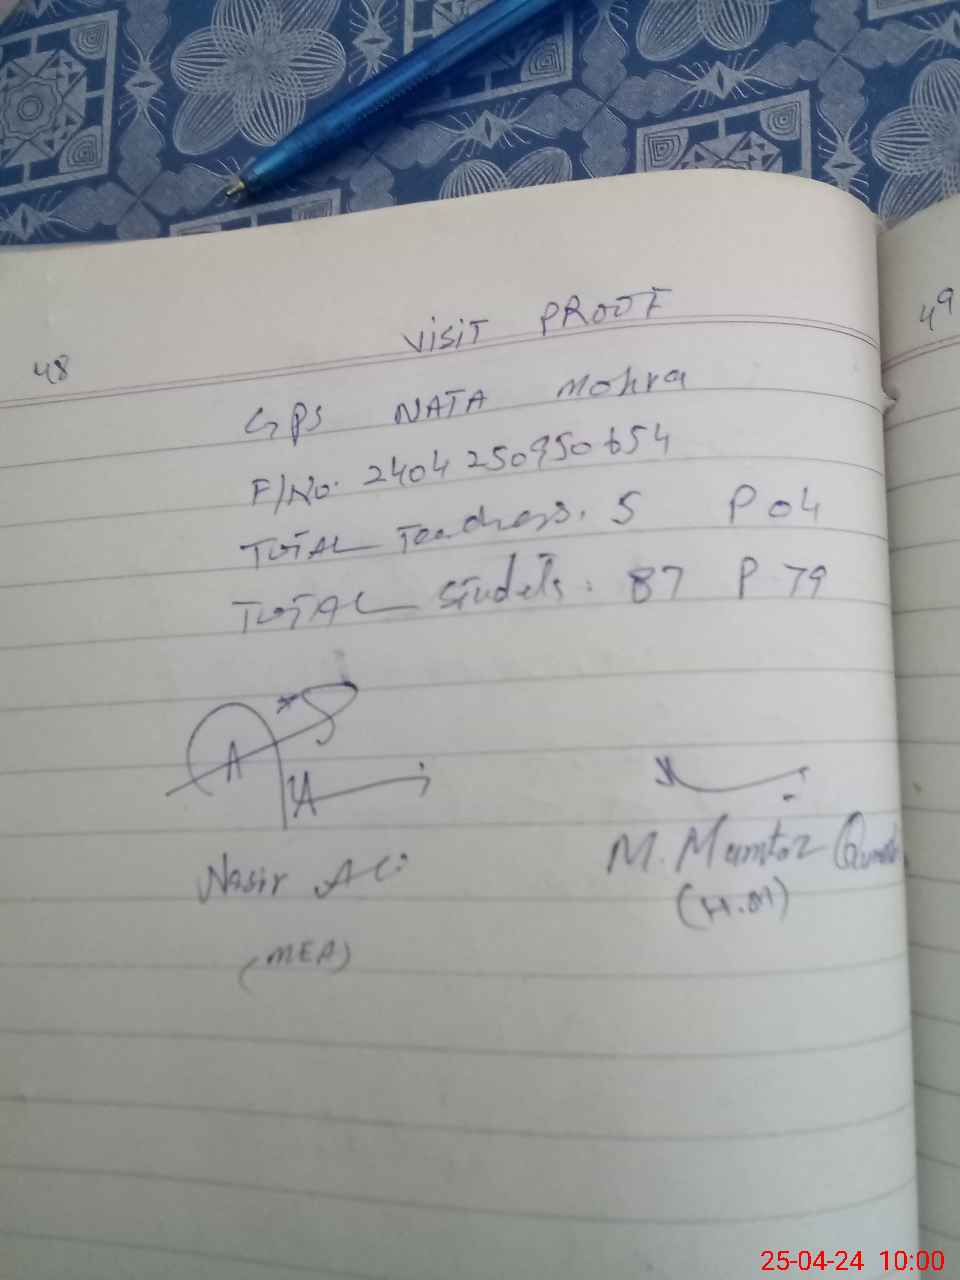 VISIT PROOF
48
49
GPS NATA Mohra
F/No. 2404250950654
TOTAL Teachers. 5 P 04
TOTAL Studets: 87 P 79
A
Nasir Ali
M. Mumtaz
(H.M)
(MEA)
25-04-24 10:00